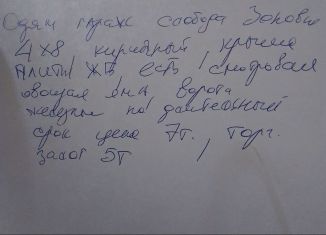 Сдам гараж слобода Зоновы
4х8 кирпичный, крыша
плиты ЖБ есть, смотровая
овощная яма ворота
железные на длительный
срок цена 7т., торг.
залог 5т,